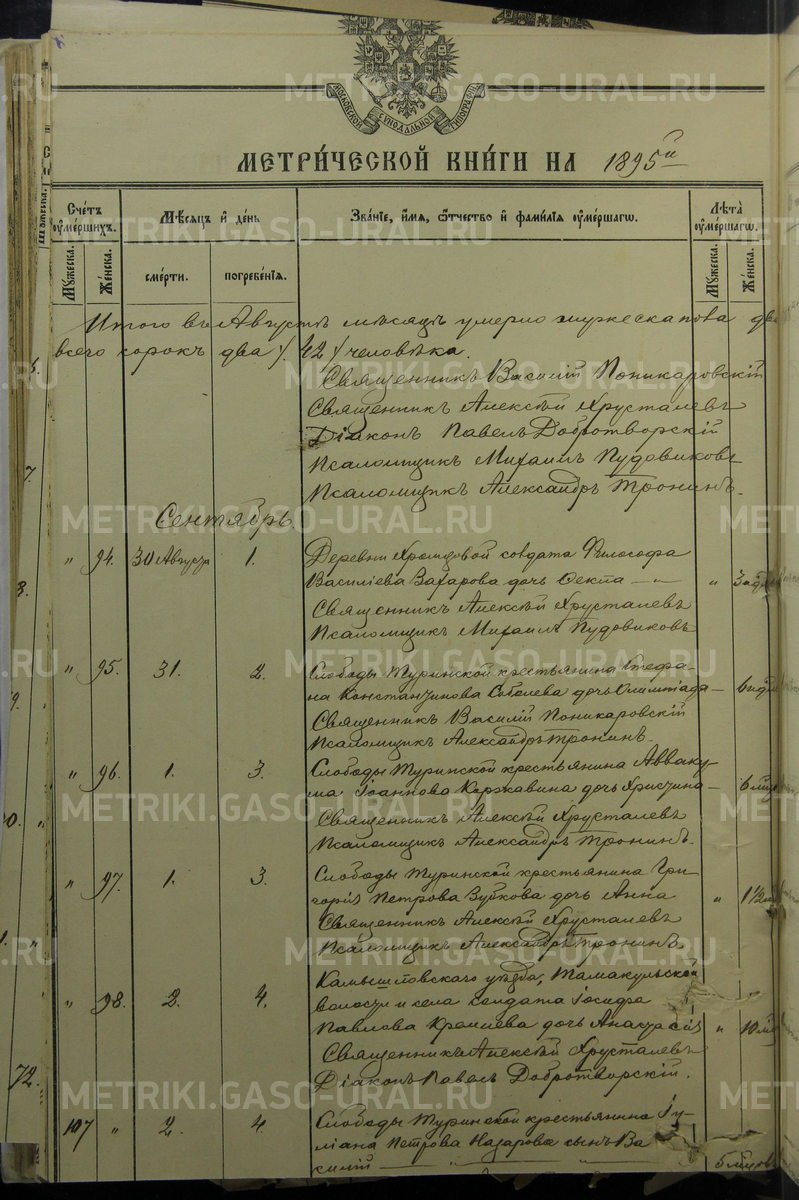 МОСКОВСКОЙ СѴНОДАЛЬНОЙ ТИПОГРАФІИ
МЕТРИ́ЧЕСКОЙ КНИ́ГИ НА 1895й
Сче́тъ ᲂу҆ме́ршихъ.
Мѣ́сяцъ и҆ де́нь
Зва́нїе, и҆́мя, ѻ҆́тчество и҆ фами́лїя ᲂу҆ме́ршагѡ.
Лѣ́та ᲂу҆ме́ршагѡ.
Мꙋ́жеска.
Же́нска.
сме́рти.
погребе́нїя.
Мꙋ́жеска.
Же́нска.
Итого въ Августѣ мѣсяцѣ умерло мужеска пола
всего сорокъ два /42/ человѣка.
Священникъ Василій Поникаровскій
Священникъ Алексѣй Хрусталевъ
Діаконъ Павелъ Добротворскій
Псаломщикъ Михаилъ Пудовиковъ
Псаломщикъ Александръ Тронинъ.
Сентябрь.
" 94. 30 Августа 1. Деревни Хромцовой солдата Философа
Василіева Захарова дочь Ѳекла — " — "
Священникъ Алексѣй Хрусталевъ
Псаломщикъ Михаилъ Пудовиковъ
" 95. 31. 2. Слободы Туринской крестьянина Стефа-
на Константинова Соболева дочь Олимпіада —
Священникъ Василій Поникаровскій
Псаломщикъ Александръ Тронинъ.
" 96. 1. 3. Слободы Туринской крестьянина Авваку-
ма Іоаннова Каржавина дочь Христина —
Священникъ Алексѣй Хрусталевъ
Псаломщикъ Александръ Тронинъ.
" 97. 1. 3. Слободы Туринской крестьянина Гри-
горія Петрова Зуйкова дочь Анна " 1½
Священникъ Алексѣй Хрусталевъ
Псаломщикъ Александръ Тронинъ.
" 98. 2. 4. Камышловскаго уѣзда, Тамакульской
волости и села солдата Іосифа
Павлова дочь Анастасія " 10
Священникъ Алексѣй Хрусталевъ
Діаконъ Павелъ Добротворскій.
107 " 2. 4. Слободы Туринской крестьянина Іу-
ліана Петрова Назарова сынъ Ва
силій — " —
METRIKI.GASO-URAL.RU